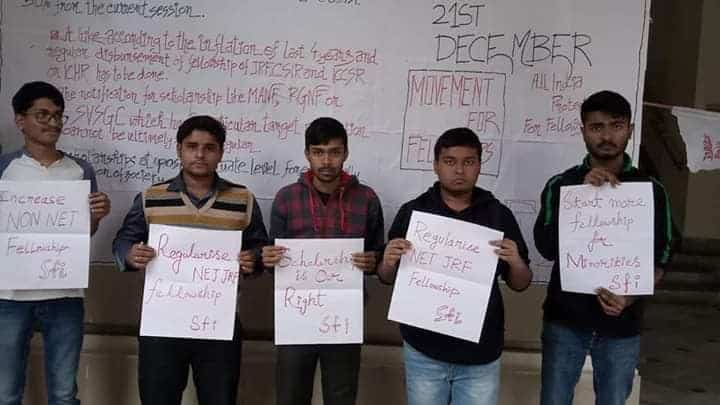 from the current session.
A hike according to the inflation of last 4 years and
regular disbursement of fellowship of JRF, CSIR and ICCSR
or ICHR has to be done.
notification for scholarship like MANF, RGNF or
SVSGC which has particular target
cannot be ultimately
scholarships at
level for
of society
21ST
DECEMBER
MOVEMENT
FOR
All India
Protest
For Fellow
Increase
NON NET
Fellowship
Sfi
Regularise
NET JRF
fellowship
Sfi
Scholarship
is Our
Right
Sfi
Regularise
NET JRF
Fellowship
Sfi
Start more
fellowship
for
Minorities
Sfi